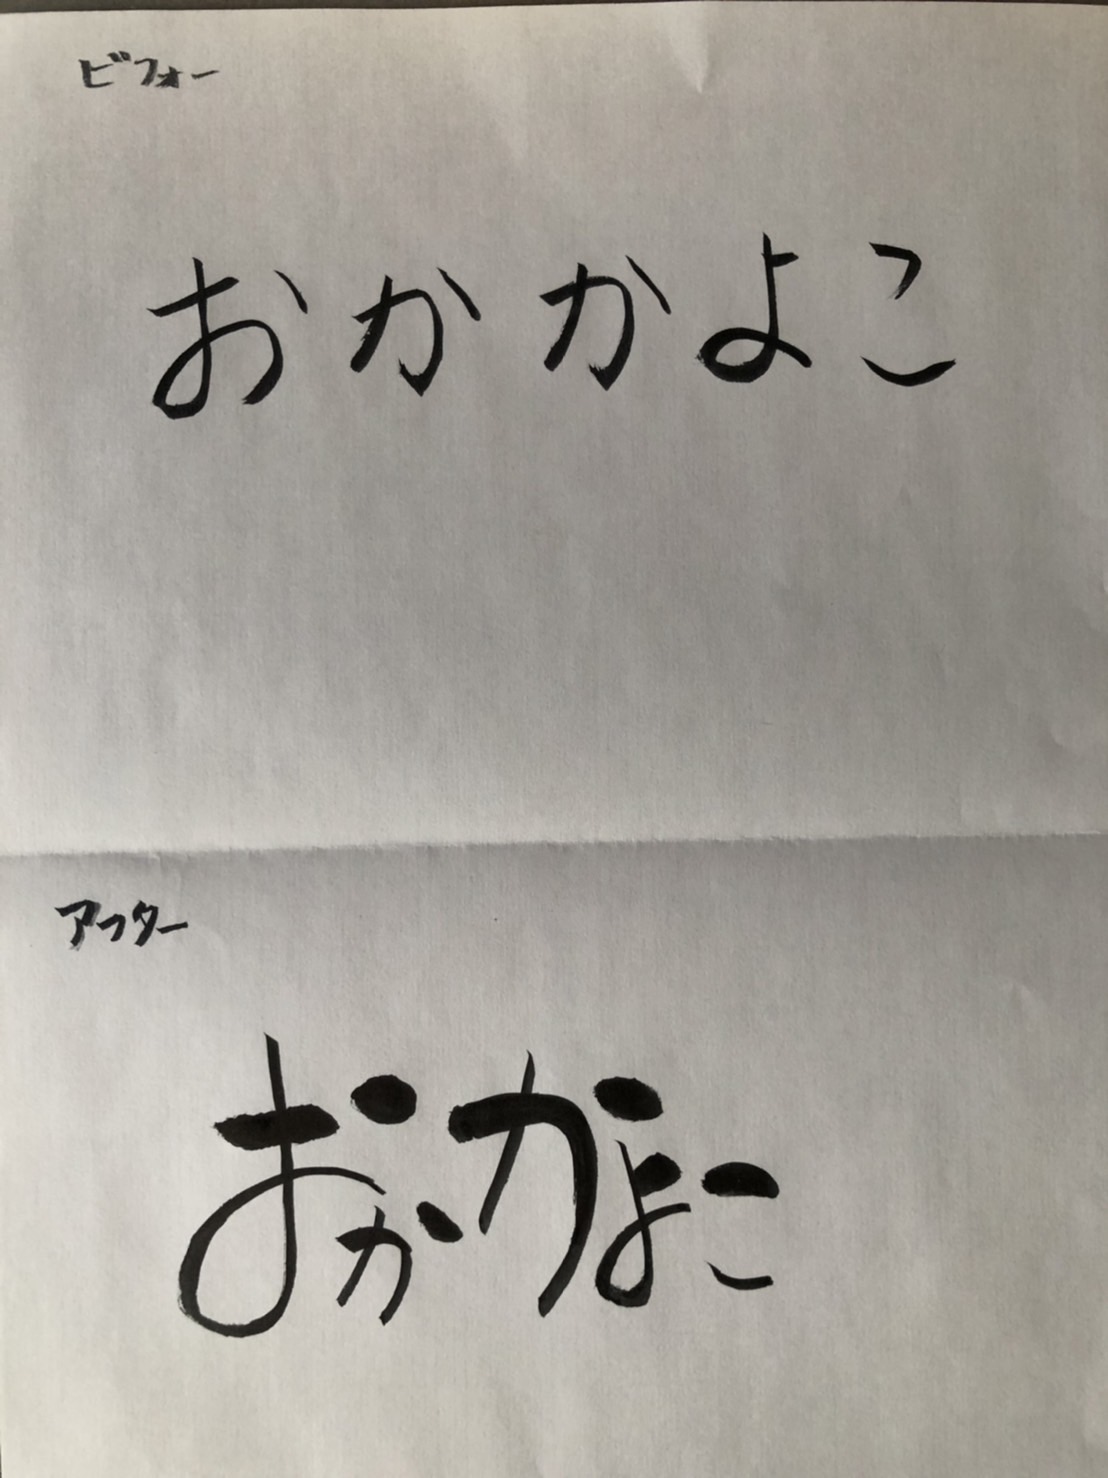 ビフォー
おかかよこ
アフター
おかかよこ